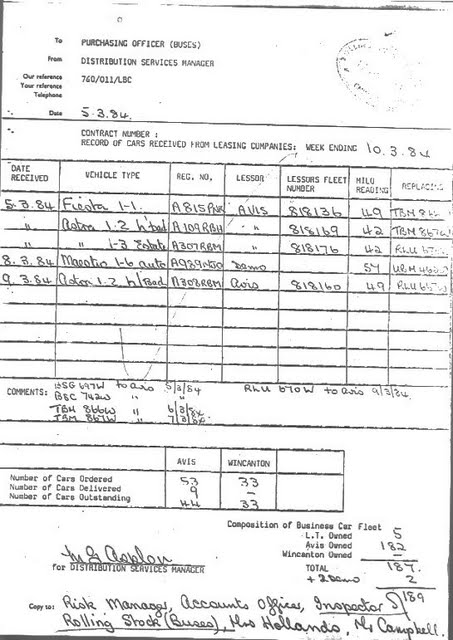 To PURCHASING OFFICER (BUSES)
From DISTRIBUTION SERVICES MANAGER
Our reference 760/011/LBC
Your reference
Telephone
Date 5.3.84.
CONTRACT NUMBER :
RECORD OF CARS RECEIVED FROM LEASING COMPANIES: WEEK ENDING 10.3.84
DATE RECEIVED VEHICLE TYPE REG. NO. LESSOR LESSORS FLEET NUMBER MILO READING REPLACING
5.3.84 Fiesta 1-1. AVIS 818136 49 TBM
" 1.2 A109RBH " 818169 42 TBM 867W
" " 1-3 Estate A307RBM " 818176 42 RLU
8.3.84 Maestro 1-6 auto Demo 57
9.3.84 1.2 A308RBM Avis 818160 49 RLU
COMMENTS: BSG 697W to avis 5/3/84 RLU 670W to avis 9/3/84
BGC 742W " "
TBH 866W " 6/3/84
TBM 867W " 7/3/84
AVIS WINCANTON
Number of Cars Ordered 53 33
Number of Cars Delivered 9 –
Number of Cars Outstanding 44 33
Composition of Business Car Fleet
L.T. Owned 5
Avis Owned 182
Wincanton Owned –
TOTAL 187.
+ 2 Demo 2
189
for DISTRIBUTION SERVICES MANAGER
Copy to: Risk Manager, Accounts Officer, Inspector
Rolling Stock (Buses), Mrs Hollands, Mr Campbell.